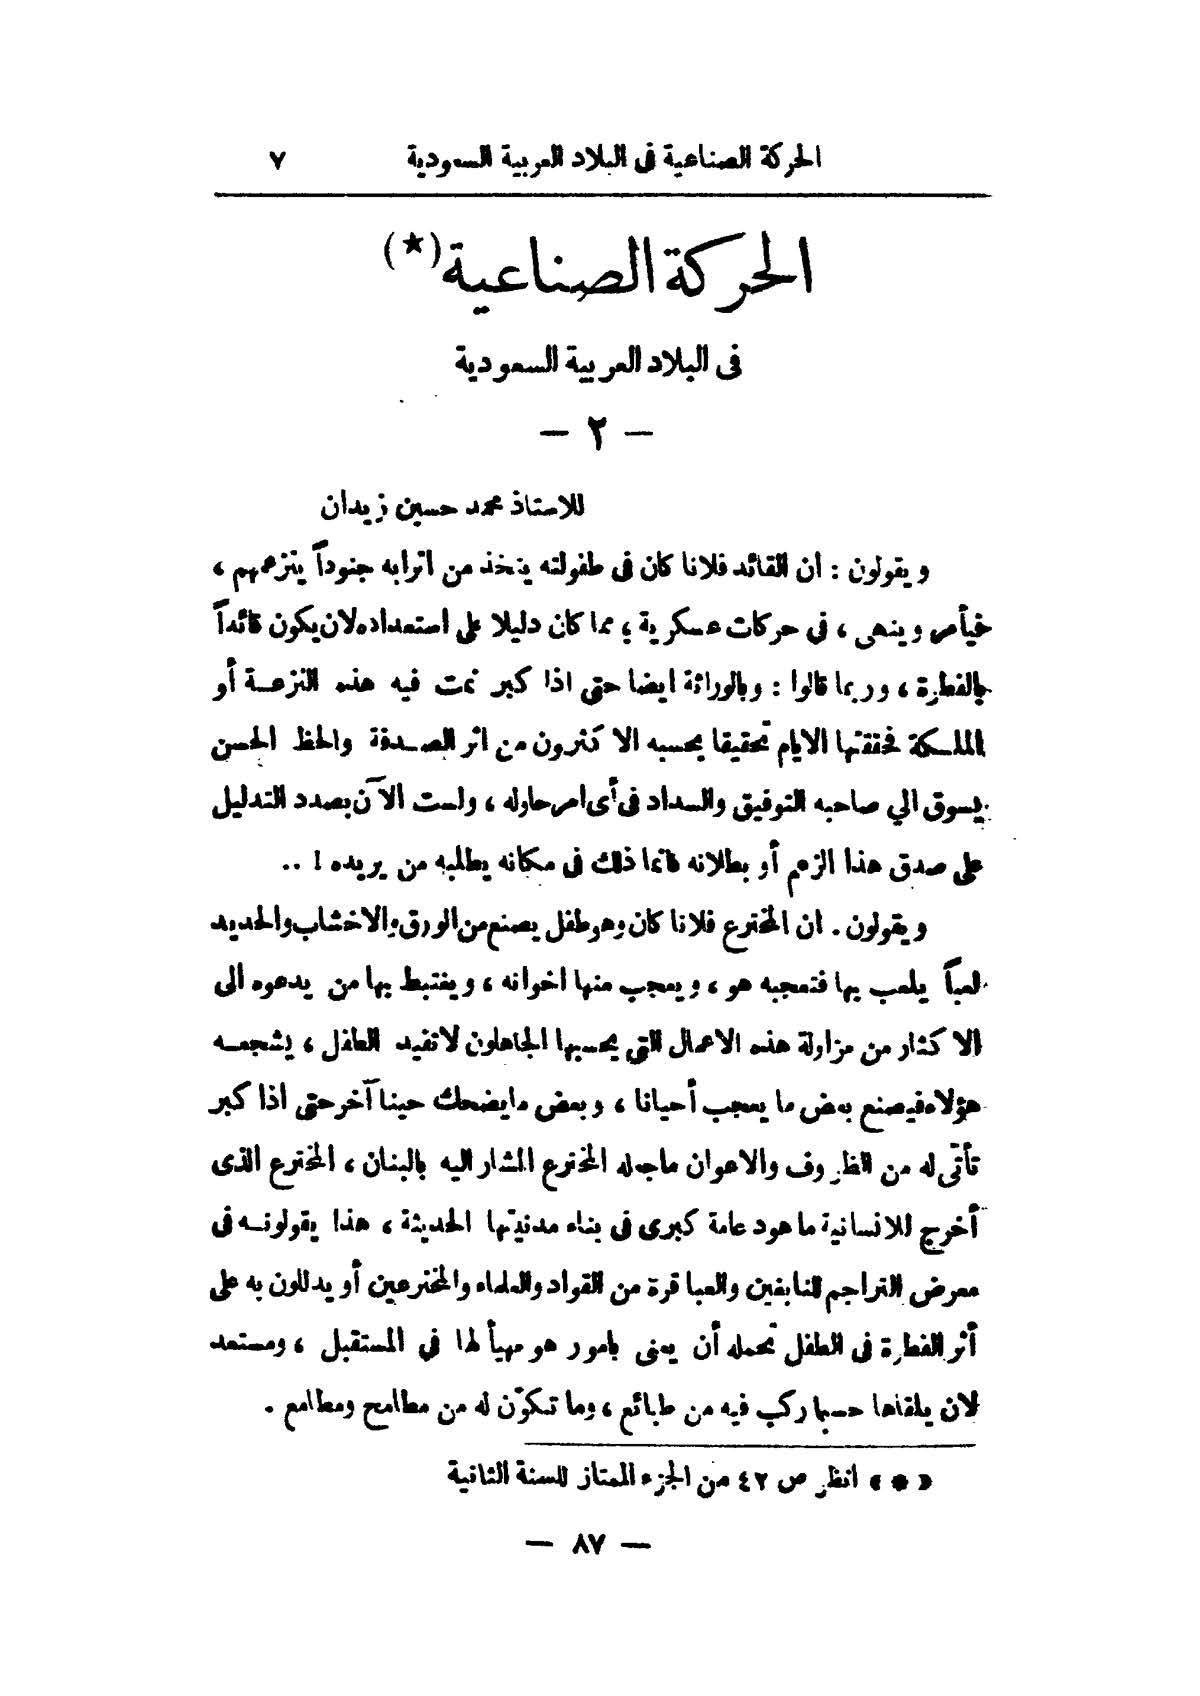 الحركة الصناعية فى البلاد العربية السعودية ٧
الحركة الصناعية (★)
فى البلاد العربية السعودية
— ٢ —
للاستاذ محمد حسين زيدان
ويقولون : ان القائد فلانا كان فى طفولته يتخذ من اترابه جنوداً يتزعمهم ،
فيأمر وينهى ، فى حركات عسكرية ؛ مما كان دليلا على استعداده لان يكون قائداً
بالفطرة ، وربما قالوا : وبالوراثة ايضا حتى اذا كبر نمت فيه هذه النزعـة أو
الملـكة فحققتها الايام تحقيقا يحسبه الاكثرون من اثر الصـدفة والحظ الحسن
يسوق الي صاحبه التوفيق والسداد فى أى امر حاوله ، ولست الآن بصدد التدليل
على صدق هذا الزعم أو بطلانه فانما ذلك فى مكانه يطلبه من يريده ! ..
ويقولون . ان المخترع فلانا كان وهو طفل يصنع من الورق والاخشاب والحديد
لعباً يلعب بها فتعجبه هو ، ويعجب منها اخوانه ، ويغتبط بها من يدعوه الى
الاكثار من مزاولة هذه الاعمال التى يحسبها الجاهلون لاتفيد الطفل ، يشجعـه
هؤلاء فيصنع بعض ما يعجب أحيانا ، وبعض مايضحك حينا آخر حتى اذا كبر
تأتى له من الظروف والاعوان ماجعله المخترع المشار اليه بالبنان ، المخترع الذى
أخرج للانسانية ماهو دعامة كبرى فى بناء مدنيتها الحديثة ، هذا يقولونـه فى
معرض التراجم للنابغين والعباقرة من القواد والعلماء والمخترعين أو يدللون به على
أثر الفطرة فى الطفل تحمله أن يعنى بامور هو مهيأ لها فى المستقبل ، ومستعد
لان يلقاها حسبما ركب فيه من طبائع ، وما تكوّن له من مطامح ومطامع .
« * » انظر ص ٤٢ من الجزء الممتاز للسنة الثانية
— ٨٧ —